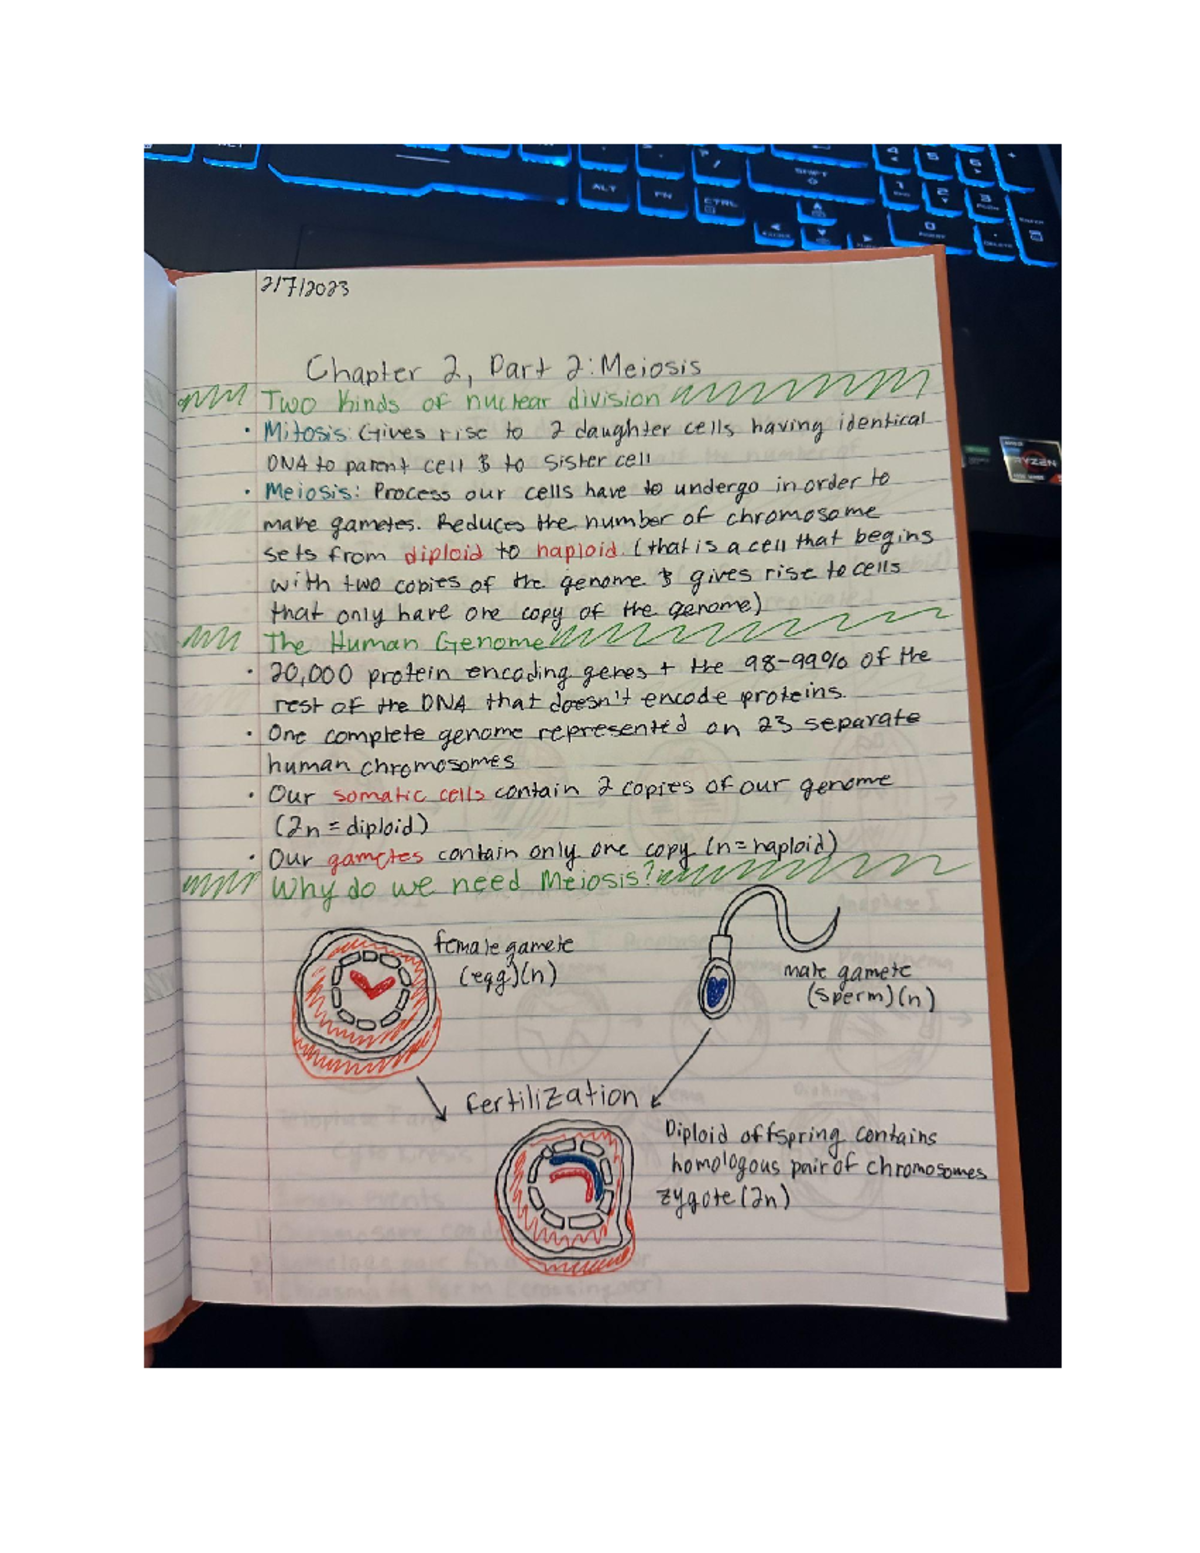 2/7/2023
Chapter 2, Part 2: Meiosis
Two Kinds of nuclear division
• Mitosis: Gives rise to 2 daughter cells having identical
DNA to parent cell & to sister cell
• Meiosis: Process our cells have to undergo in order to
make gametes. Reduces the number of chromosome
sets from diploid to haploid. (that is a cell that begins
with two copies of the genome & gives rise to cells
that only have one copy of the genome)
The Human Genome
• 20,000 protein encoding genes + the 98-99% of the
rest of the DNA that doesn't encode proteins.
• One complete genome represented on 23 separate
human chromosomes
• Our somatic cells contain 2 copies of our genome
(2n = diploid)
• Our gametes contain only one copy (n = haploid)
Why do we need Meiosis?
female gamete
(egg)(n)
male gamete
(sperm)(n)
fertilization
Diploid offspring contains
homologous pair of chromosomes
zygote (2n)
ALT
FN
CTRL
SHIFT
RYZEN